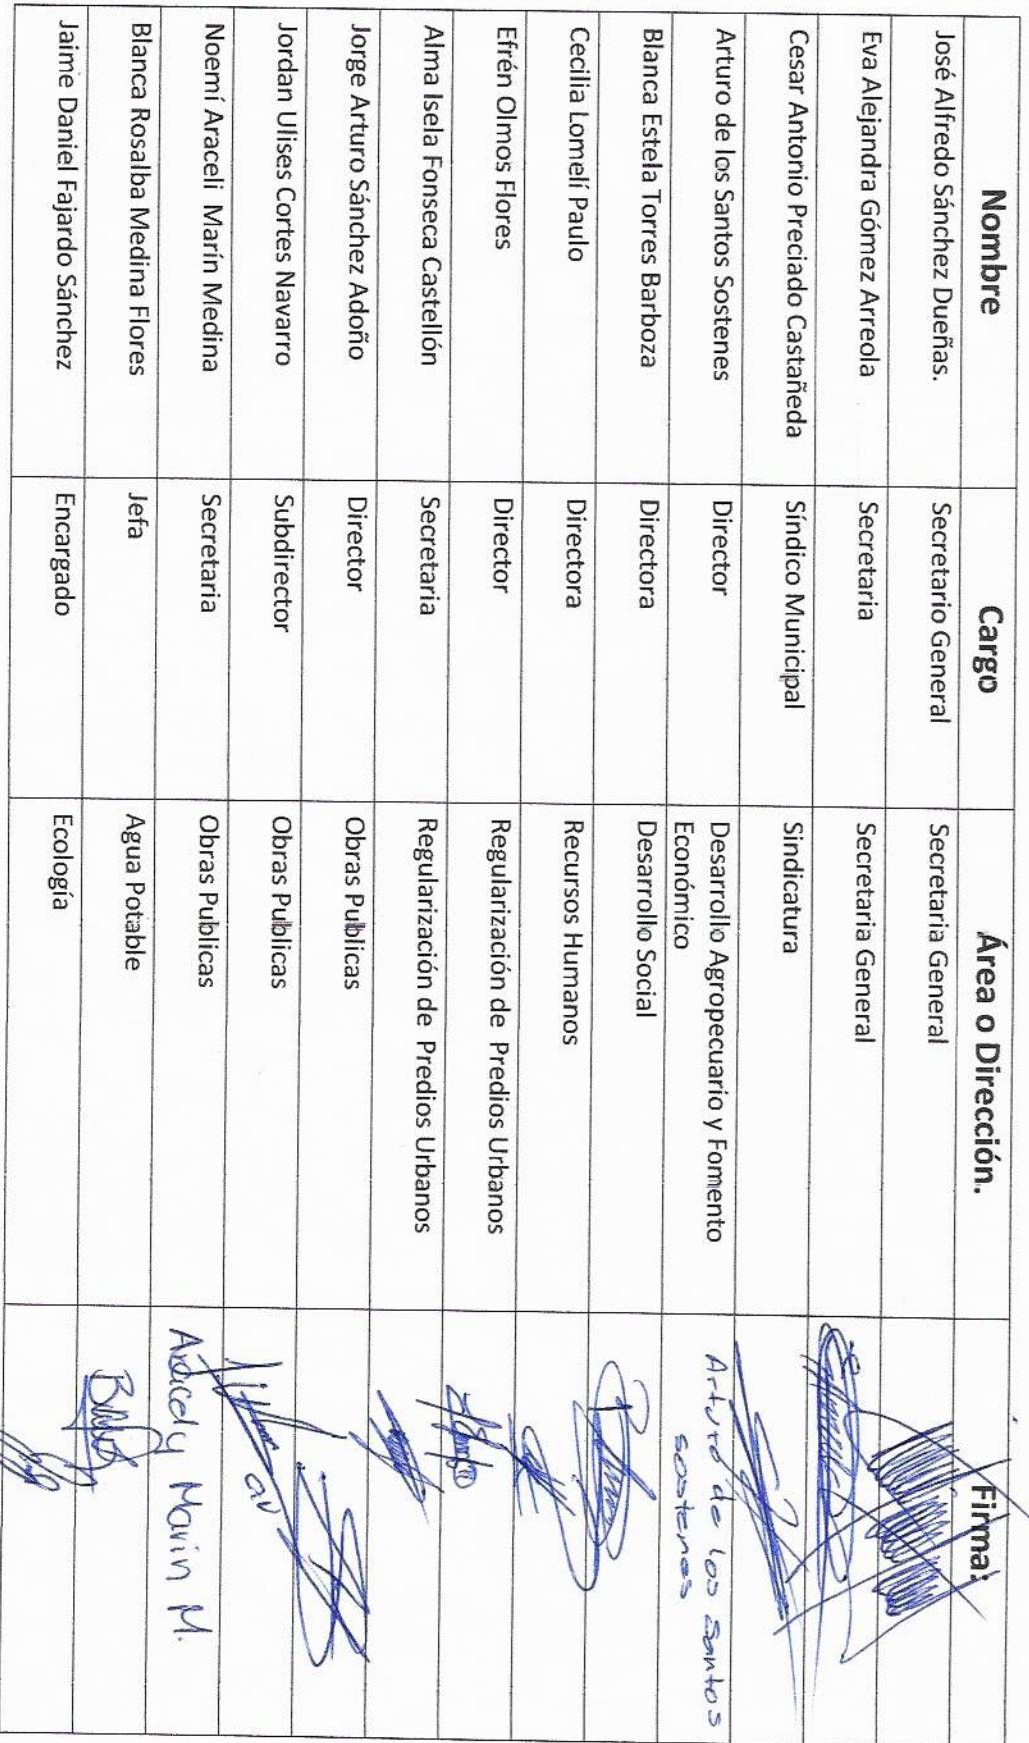 Nombre Cargo Área o Dirección. Firma:
José Alfredo Sánchez Dueñas. Secretario General Secretaria General
Eva Alejandra Gómez Arreola Secretaria Secretaria General
Cesar Antonio Preciado Castañeda Síndico Municipal Sindicatura
Arturo de los Santos Sostenes Director Desarrollo Agropecuario y Fomento Arturo de los Santos
Económico sostenes
Blanca Estela Torres Barboza Directora Desarrollo Social
Cecilia Lomelí Paulo Directora Recursos Humanos
Efrén Olmos Flores Director Regularización de Predios Urbanos
Alma Isela Fonseca Castellón Secretaria Regularización de Predios Urbanos
Jorge Arturo Sánchez Adoño Director Obras Publicas
Jordan Ulises Cortes Navarro Subdirector Obras Publicas
Noemí Araceli Marín Medina Secretaria Obras Publicas Aracely Marin M.
Blanca Rosalba Medina Flores Jefa Agua Potable
Jaime Daniel Fajardo Sánchez Encargado Ecología